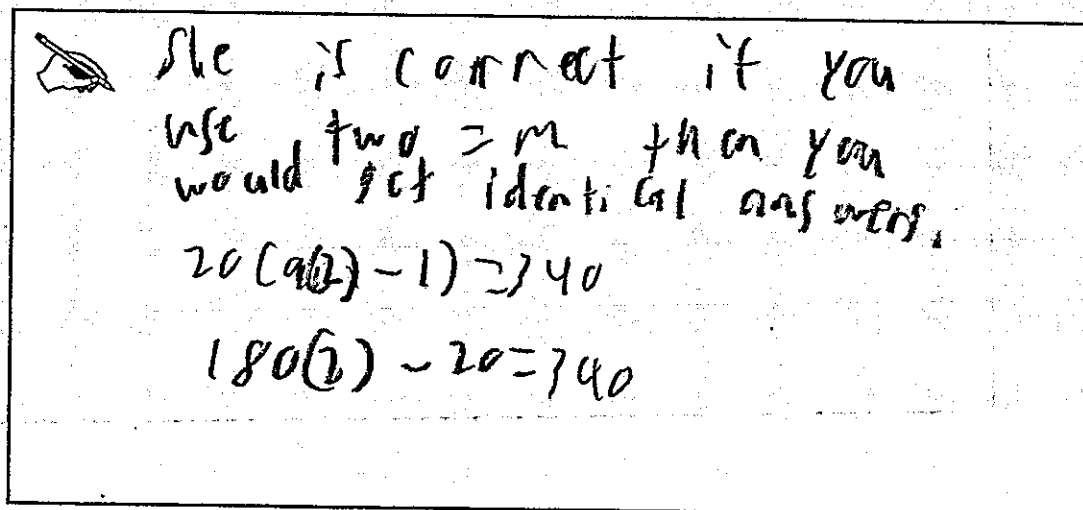 She is correct if you
use two = m then you
would get identical answers.
20(9(2)-1)=340
180(2)-20=340